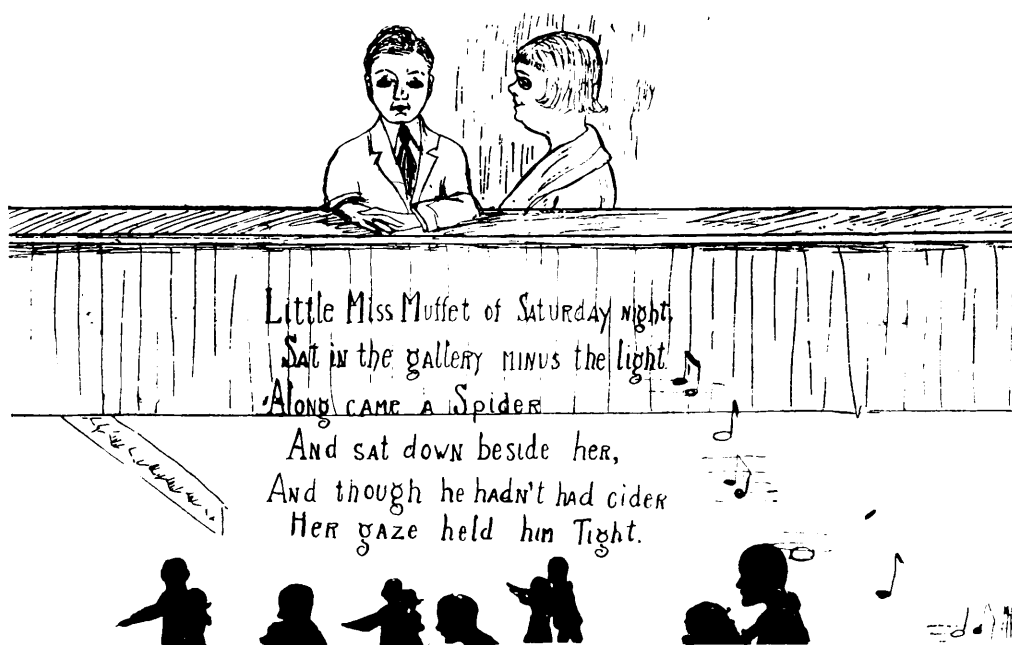 Little Miss Muffet of Saturday night,
Sat in the gallery minus the light
Along came a Spider
And sat down beside her,
And though he hadn't had cider
Her gaze held him Tight.